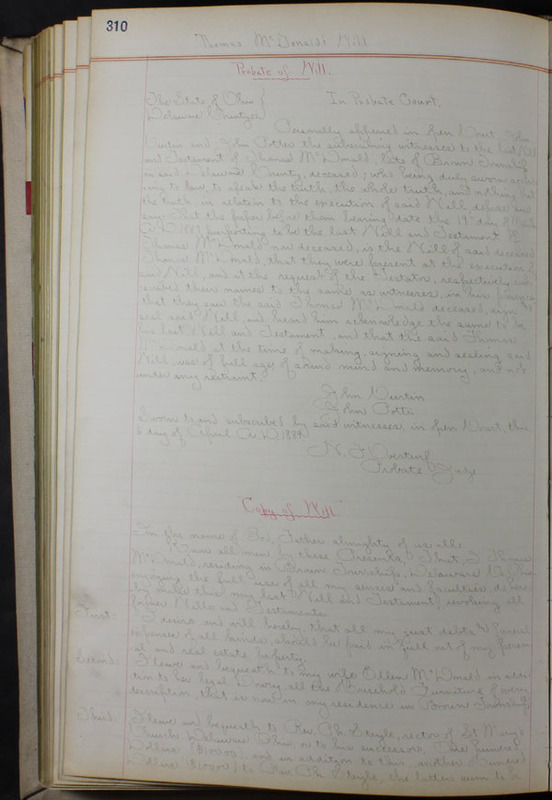 310
Thomas McDonald's Will
Probate of Will.
The State of Ohio {
Delaware County ss
In Probate Court.
Personally appeared in open Court John
and John Potter the subscribing witnesses to the last Will
and Testament of Thomas McDonald, late of Brown Township
in said Delaware County, deceased; who being duly sworn accor-
ing to law, to speak the truth, the whole truth, and nothing but
the truth, in relation to the execution of said Will, depose and
say: That the paper before them bearing date the 19" day of
A.D. purporting to be the last Will and Testament of
Thomas McDonald now deceased, is the Will of said deceased
Thomas McDonald, that they were present at the execution of
said Will, and at the request of the Testator, respectively, sub-
scribed their names to the same as witnesses, in his presence
that they saw the said Thomas McDonald deceased, sign &
seal said Will, and heard him acknowledge the same to be
his last Will and Testament, and that the said Thomas
McDonald at the time of making, signing and sealing said
Will, was of full age, of sound mind and memory, and not
under any restraint.
John
John Potter
Sworn to and subscribed by said witnesses, in open Court, this
day of April A.D. 1884
Probate Judge
Copy of Will
In the name of God, Father almighty of us all.
Know all men by these Presents, That I Thomas
McDonald, residing in Brown Township, Delaware Co. Ohio
enjoying the full use of all my senses and faculties, do here-
by make this my last Will and Testament, revoking all
former Wills and Testaments.
First. I desire and will hereby, that all my just debts & funeral
expenses of all kinds, should be paid in full out of my person-
al and real estate property.
Second. I leave and bequeath to my wife Ellen McDonald in addi-
tion to her legal Dowry, all the Household Furniture of every
description, that is now in my residence in Brown Township
Third. I leave and bequeath to Rev. Ph. Steyle, rector of St Mary's
Church, Delaware Ohio, or to his successors, One hundred
Dollars ($100.00), and in addition to this, another Hundred
Dollars ($100.00) to Rev. Ph. Steyle, the latter sum to be